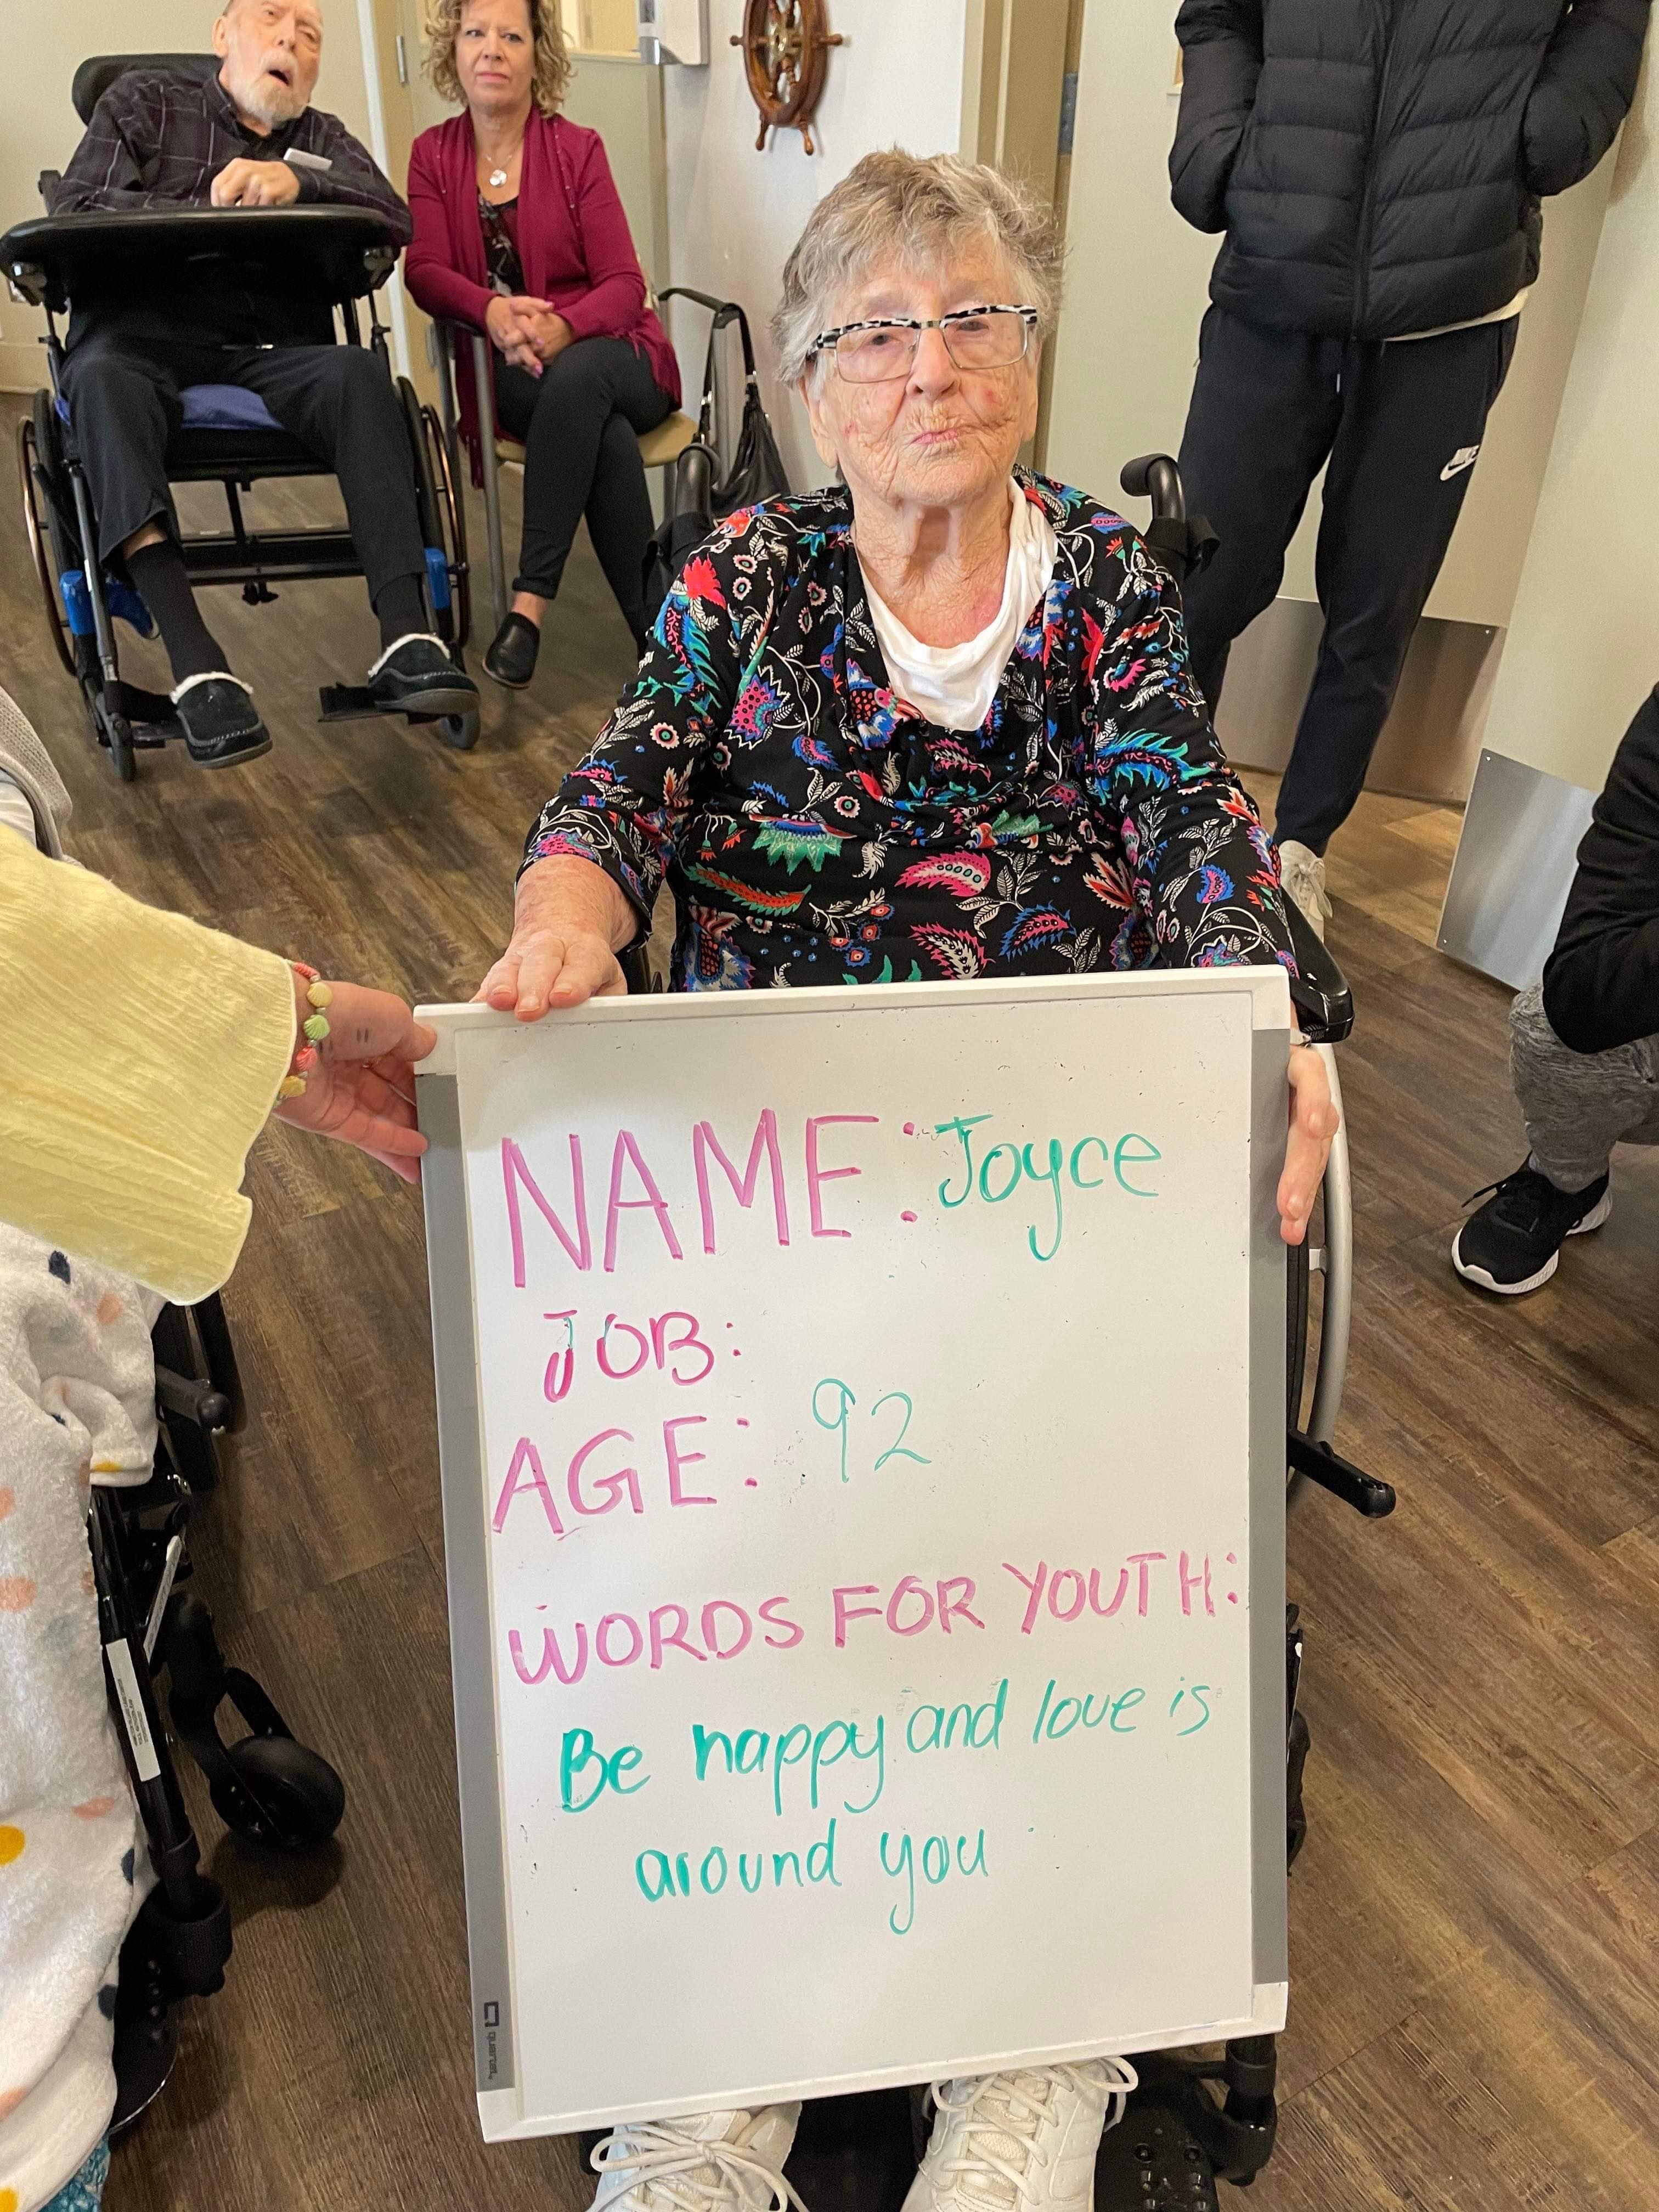 NAME: Joyce
JOB:
AGE: 92
WORDS FOR YOUTH:
Be happy and love is
around you
quartet
NIKE